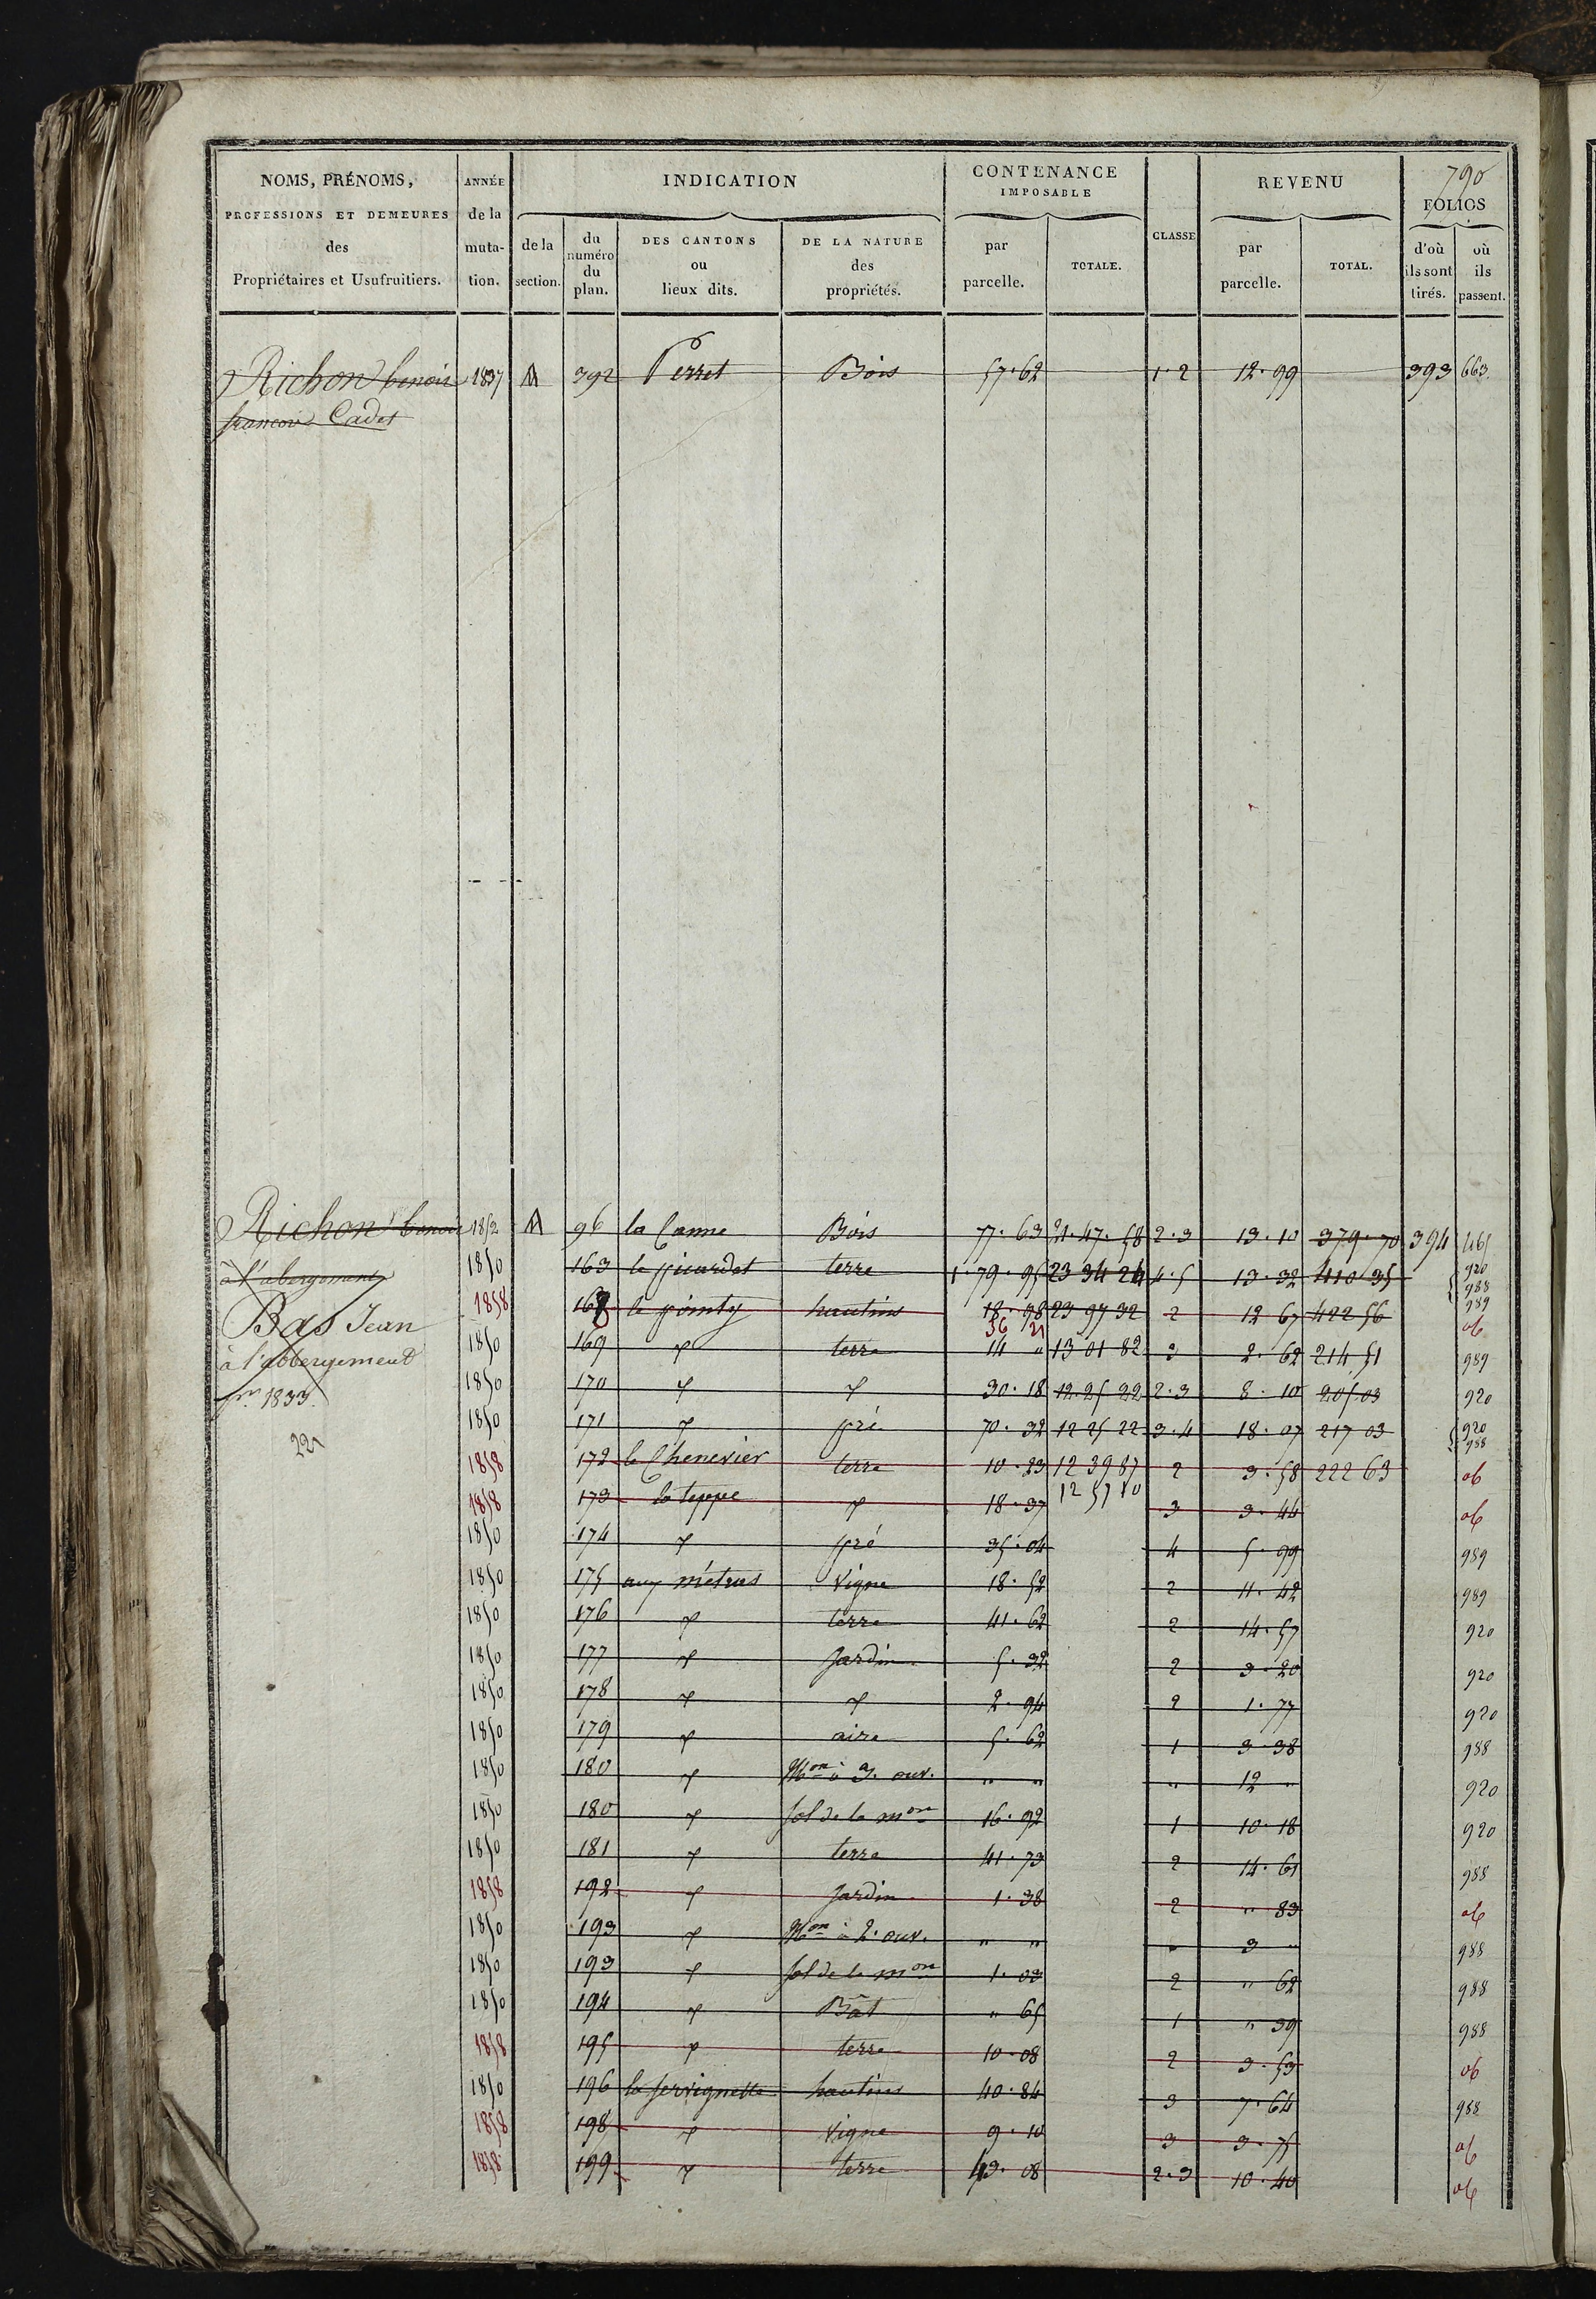 790
NOMS, PRÉNOMS, ANNÉE INDICATION CONTENANCE REVENU
PROFESSIONS ET DEMEURES de la IMPOSABLE FOLIOS
des muta- de la du DES CANTONS DE LA NATURE par TOTALE. CLASSE par TOTAL. d'où où
Propriétaires et Usufruitiers. tion. section. numéro ou des parcelle. parcelle. ils sont ils
du plan. lieux dits. propriétés. tirés. passent.
Richon benoit 1837 M 392 Perret Bois 57.62 1.2 12.99 393 663
francois Cadet
Richon benoit 1852 M 96 la Canne Bois 77.63 21.47.58 2.3 13.10 379.70 394 465
à l'abergement 1850 163 le picardet terre 1.79.95 23 34 24 4.5 13.32 410 35 920 988 989
Bas Jean 1858 168 le pointy hautins 18.98 23 97 32 2 12 67 422 56 ob
36 21
à l'abbergement 1850 169 terre 14 " 13 01 82 3 2.62 214 51 989
pr. 1833. 1850 170 30.18 12.25 22 2.3 8.10 205.03 920
221 1850 171 pré 70.32 12 25 22 3.4 18.07 217 03 920 988
1858 172 le Chenevier terre 10.23 12 39 87 2 3.58 222 63 ob
1858 173 la teppe 18.37 12 57 80 3 3.44 ob
1850 174 pré 35.04 4 5.99 989
1850 175 aux métrus Vigne 18.52 2 11.42 989
1850 176 terre 41.62 2 14.57 920
1850 177 Jardin 5.32 2 3.20 920
1850 178 2.94 2 1.77 920
1850 179 aire 5.62 1 3.38 988
1850 180 Mon à 3. ouv. " " " 12 " 920
1850 180 sol de la mon 16.92 1 10.18 920
1850 181 terre 41.73 2 14.61 988
1858 192 Jardin 1.38 2 " 83 ob
1850 193 Mon à 2. ouv. " " " 3 " 988
1850 193 sol de la mon 1.03 2 " 62 988
1850 194 Bât " 65 1 " 39 988
1858 195 terre 10.08 2 3.53 ob
1850 196 la servignette hautins 40.84 3 7.64 988
1858 198 Vigne 9.10 3 3.75 ob
1858 199 terre 43.08 2.3 10.40 ob